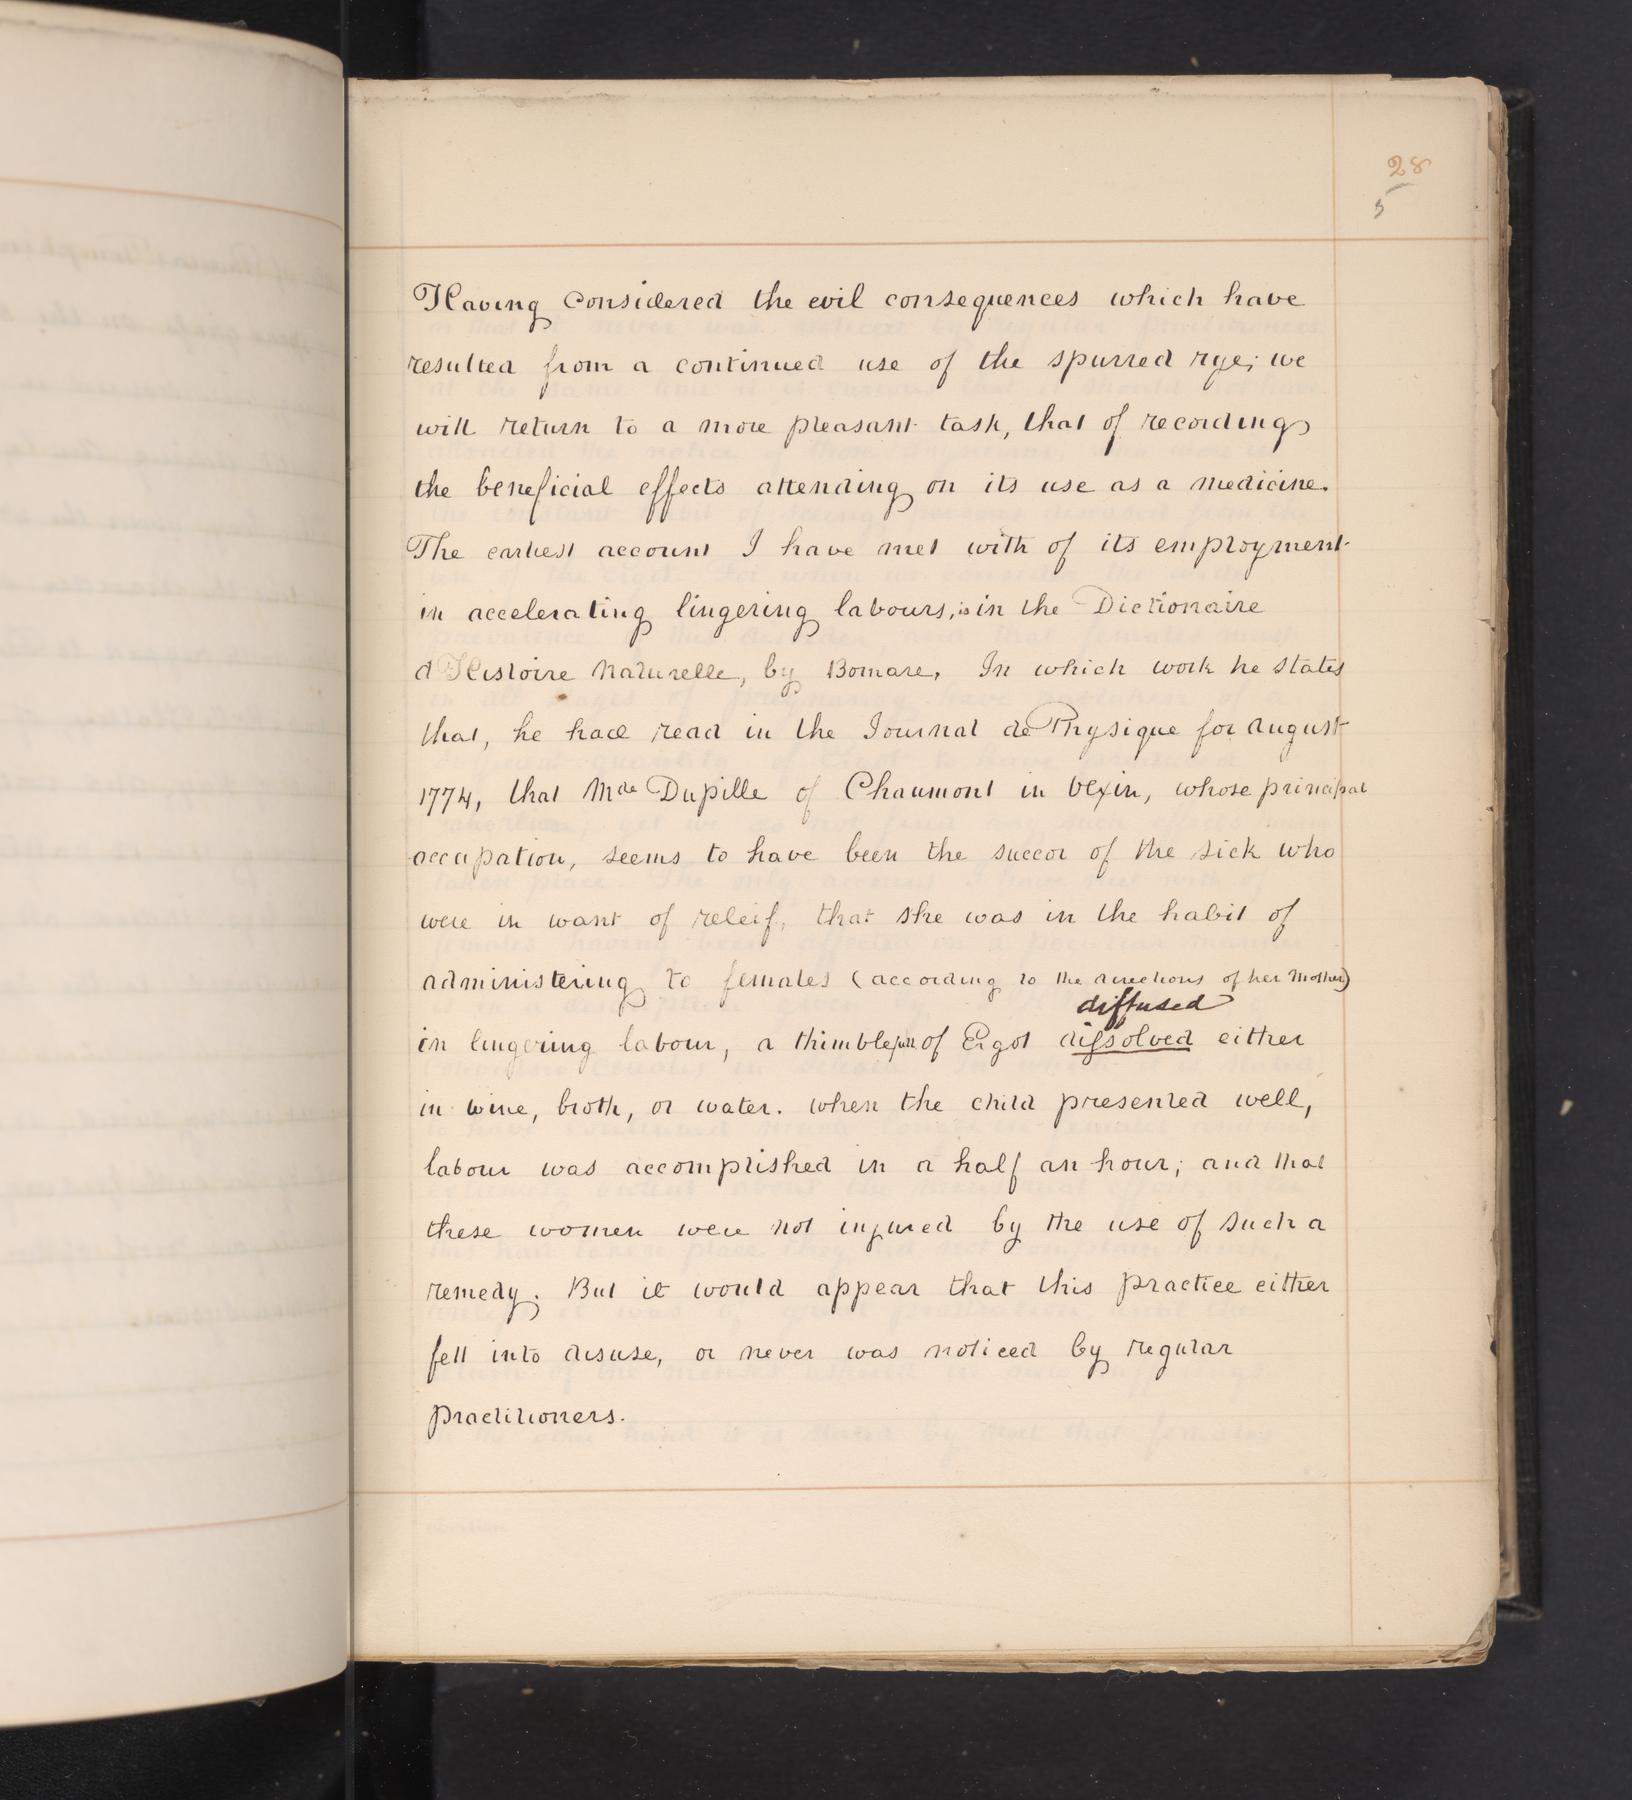 28
5
Having considered the evil consequences which have
resulted from a continued use of the spurred rye; we
will return to a more pleasant task, that of recording
the beneficial effects attending on its use as a medicine.
The earliest account I have met with of its employment
in accelerating lingering labours, is in the Dictionaire
d'Histoire Naturelle, by Bomare, In which work he states
that, he had read in the Journal de Physique for August
1774, that Mde Dupille of Chaumont in Vexin, whose principal
occupation, seems to have been the succor of the sick who
were in want of releif, that she was in the habit of
administering to females (according to the directions of her Mother)
diffused
in lingering labour, a thimblefull of Ergot dissolved either
in wine, broth, or water. when the child presented well,
labour was accomplished in a half an hour; and that
these women were not injured by the use of such a
remedy. But it would appear that this practice either
fell into disuse, or never was noticed by regular
practitioners.